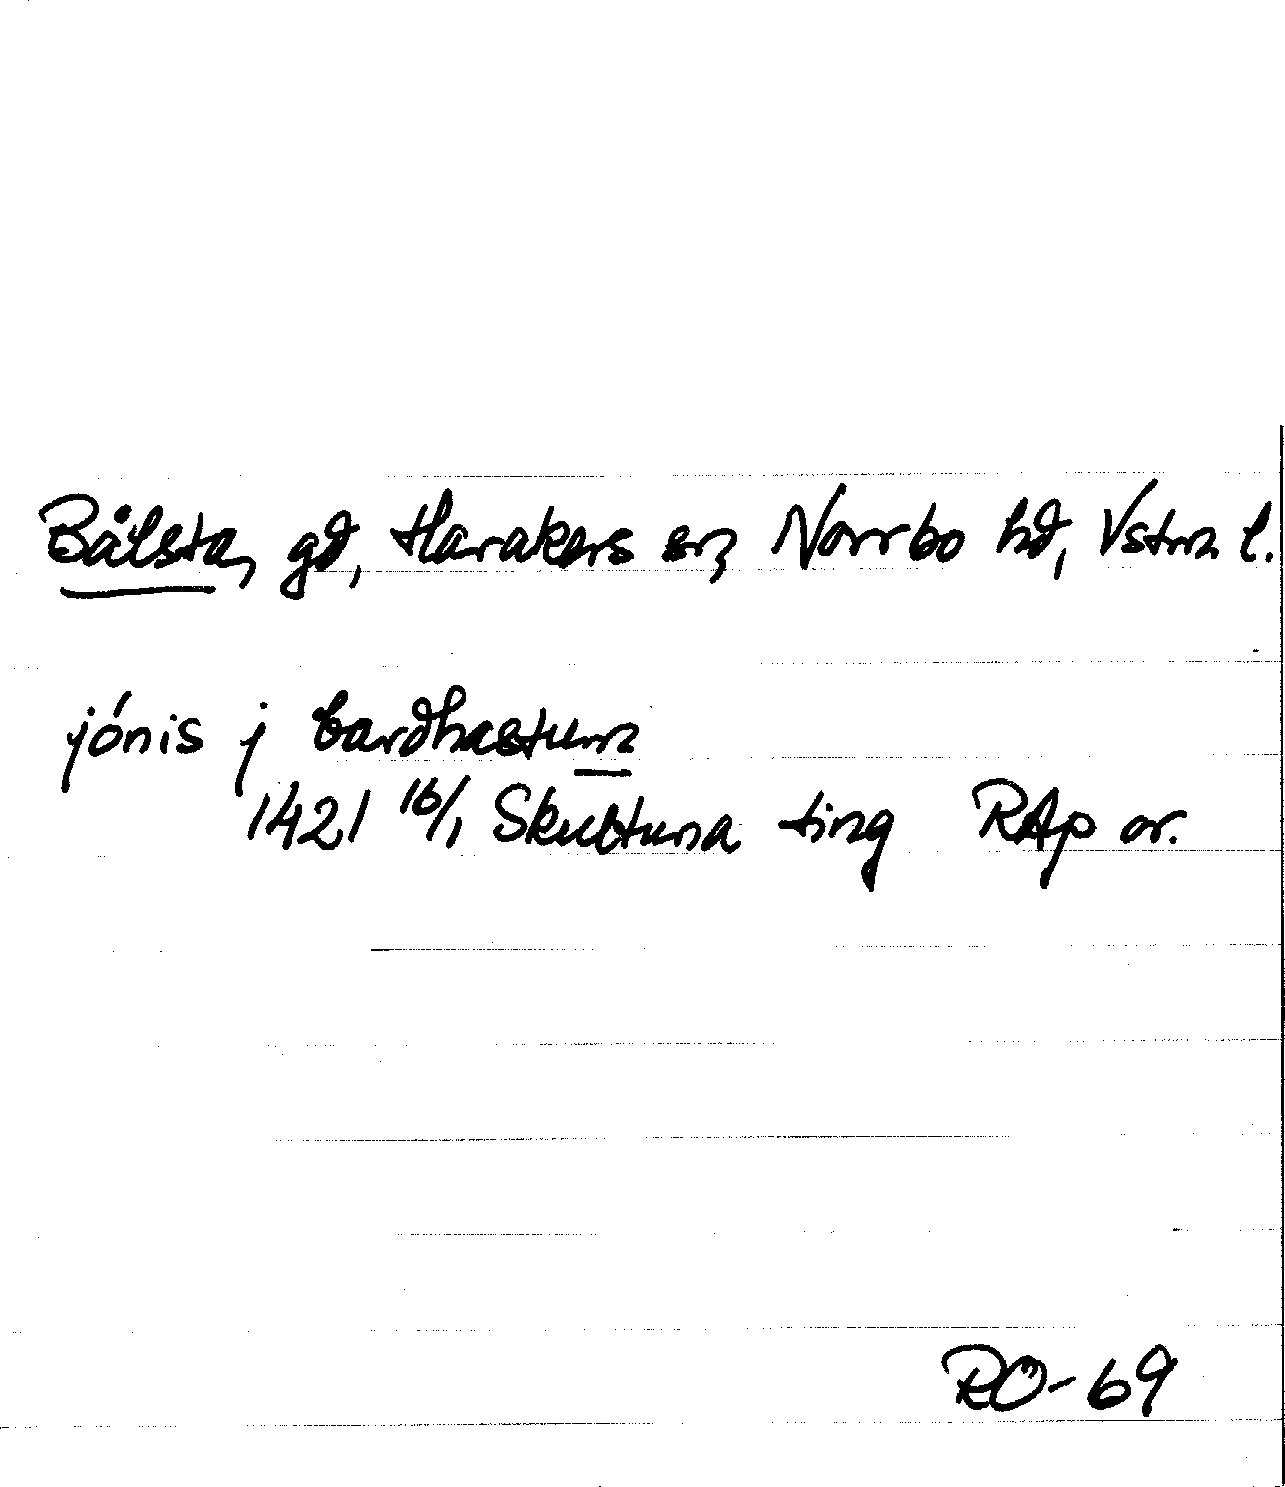 Bålsta, gd, Harakers sn, Norrbo hd, Vstm l.
jónis j bardhastum
1421 16/1 Skultuna ting RAp or.
RO-69